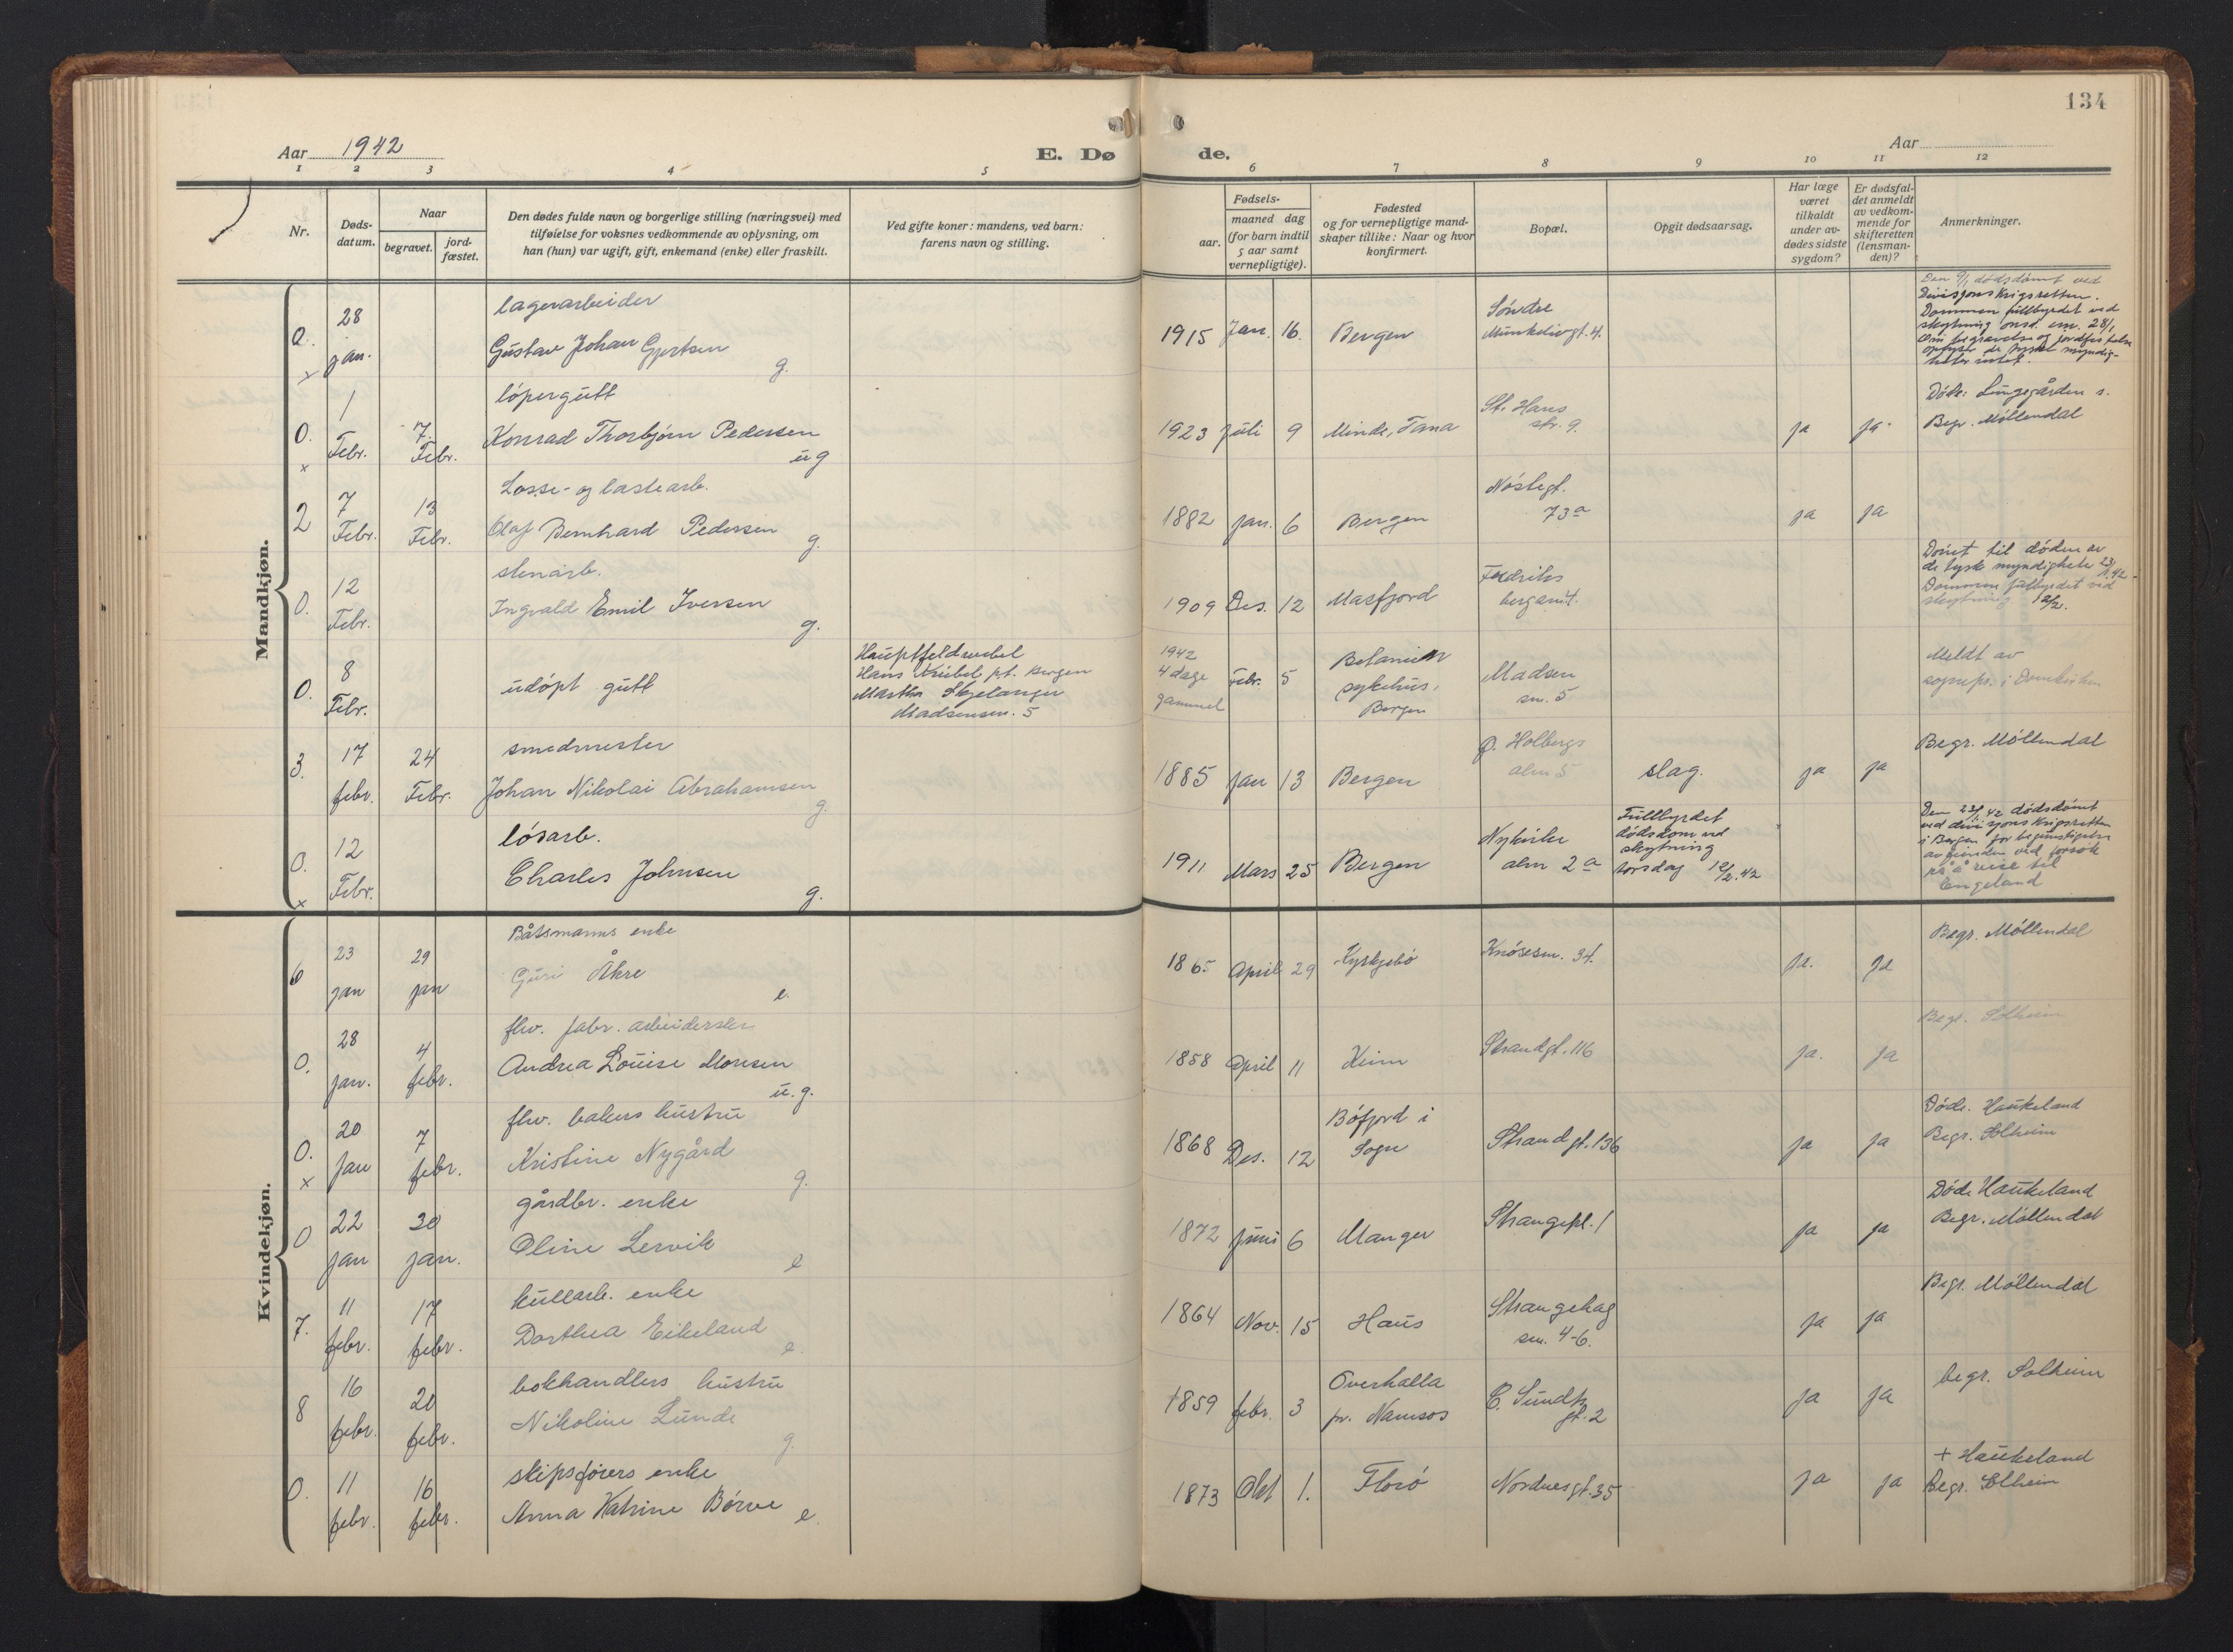 134
Aar 1942
E. Dø
de.
Aar
1 2 3 4 5 6 7 8 9 10 11 12
Nr.
Døds-
datum.
Naar
begravet.
jord-
fæstet.
Den dødes fulde navn og borgerlige stilling (næringsvei) med
tilføielse for voksnes vedkommende av oplysning, om
han (hun) var ugift, gift, enkemand (enke) eller fraskilt.
Ved gifte koner: mandens, ved barn:
farens navn og stilling.
Fødsels-
aar.
maaned dag
(for barn indtil
5 aar samt
vernepligtige).
Fødested
og for vernepligtige mand-
skaper tillike: Naar og hvor
konfirmert.
Bopæl.
Opgit dødsaarsag.
Har læge
været
tilkaldt
under av-
dødes sidste
sygdom?
Er dødsfal-
det anmeldt
av vedkom-
mende for
skifteretten
(lensman-
den)?
Anmerkninger.
Mandkjøn.
0. x
28
jan.
lagerarbeider
Gustav Johan Gjertsen
g.
1915 Jan. 16. Bergen
Søndre
Munkelivgt. 4.
Den 9/1 dødsdømt ved
Divisjons Krigsretten.
Dommen fullbyrdet ved
skytning ons. em. 28/1,
Om begravelse og jordfestelse
de tyske myndig-
heter intet.
0. x
1
Febr.
7.
Febr.
løpergutt
Konrad Thorbjørn Pedersen
ug
1923 Juli 9 Minde, Fana
St. Hans
str. 9.
ja ja
Døde: Lungegården s.
Begr. Møllendal
2
7
Febr.
13
Febr.
Losse- og lastearb.
Olaf Bernhard Pedersen
g.
1882 jan. 6 Bergen
Nøstegt.
73a
ja ja
0.
12
Febr.
stenarb.
Ingvald Emil Iversen
g.
1909 Des. 12 Masfjord
Fredriks
bergsmt.
Dømt til døden av
de tyske myndigheter 23/1.42
Dommen fullbyrdet ved
skytning 12/2.
0.
8
Febr.
udøpt gutt
Hauptfeldwebel
Hans pt. Bergen
Martha Skjelanger
Madsensm. 5
1942
4 dage
gammel
Febr. 5
Betanien
sykehus,
Bergen
Madsen
sm. 5
Meldt av
sognepr. i Domkirken
3.
17
febr.
24
Febr.
smedmester
Johan Nikolai Abrahamsen
g.
1885 jan 13 Bergen
Ø. Holbergs
alm 5
slag.
ja ja
Begr. Møllendal
0. x
12
Febr.
løsarb.
Charles Johnsen
g.
1911 Mars 25 Bergen
Nykirke
alm 2a
Fullbyrdet
dødsdom ved
skytning
torsdag 12/2.42
Den 23/1.42 dødsdømt
ved divisjons Krigsretten
i Bergen for begunstigelse
av fienden ved forsøk
på å reise til
Engeland
Kvindekjøn.
6
23
jan
29
jan
Båtsmanns enke
Guri Åkre
e.
1865 April 29 Kyrkjebø
Knøsesm. 34.
ja. ja
Begr. Møllendal
0.
28
jan.
4
febr.
fhv. fabr. arbeiderske
Andrea Louise Monsen
u. g.
1858 April 11 Keim
Strandgt. 116
ja. ja
Begr. Solheim
0. x
20
jan
7
febr.
fhv. bakers hustru
Kristine Nygård
g.
1868 Des. 12
Bøfjord i
Sogn
Strandgt. 136
ja ja
Døde. Haukeland
Begr. Solheim
0
22
jan
30
jan.
gårdbr. enke
Oline Lervik
e
1872 juni 6 Manger
Strangepl. 1
ja ja
Døde Haukeland
Begr. Møllendal
7.
11
febr.
17
febr.
kullarb. enke
Dorthea Eikeland
e.
1864 Nov. 15 Haus
Strangehag
sm. 4-6.
ja ja
Begr. Møllendal
8
16
febr.
20
febr.
bokhandlers hustru
Nikoline Lunde
g.
1859 febr. 3
Overhalla
pr. Namsos
E. Sundts
gt. 2
ja ja
begr. Solheim
0.
11
febr.
16
febr.
skipsførers enke
Anna Katrine Børve
e.
1873 Okt 1. Florø
Nordnesgt. 35
ja ja
+ Haukeland
Begr. Solheim